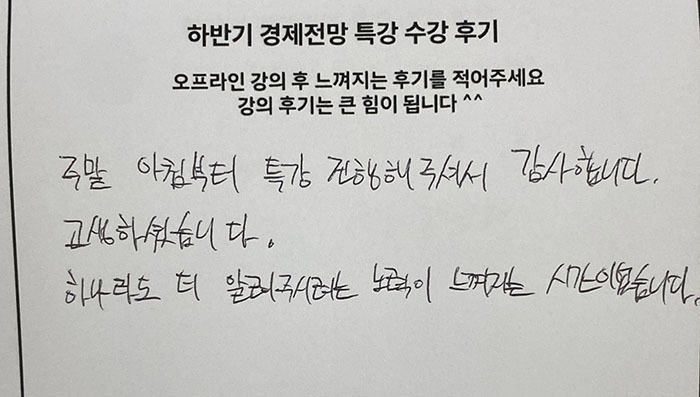 하반기 경제전망 특강 수강 후기
오프라인 강의 후 느껴지는 후기를 적어주세요
강의 후기는 큰 힘이 됩니다 ^^
주말 아침부터 특강 진행해주셔서 감사합니다.
고생하셨습니다.
하나라도 더 알려주시려는 노력이 느껴지는 시간이었습니다.